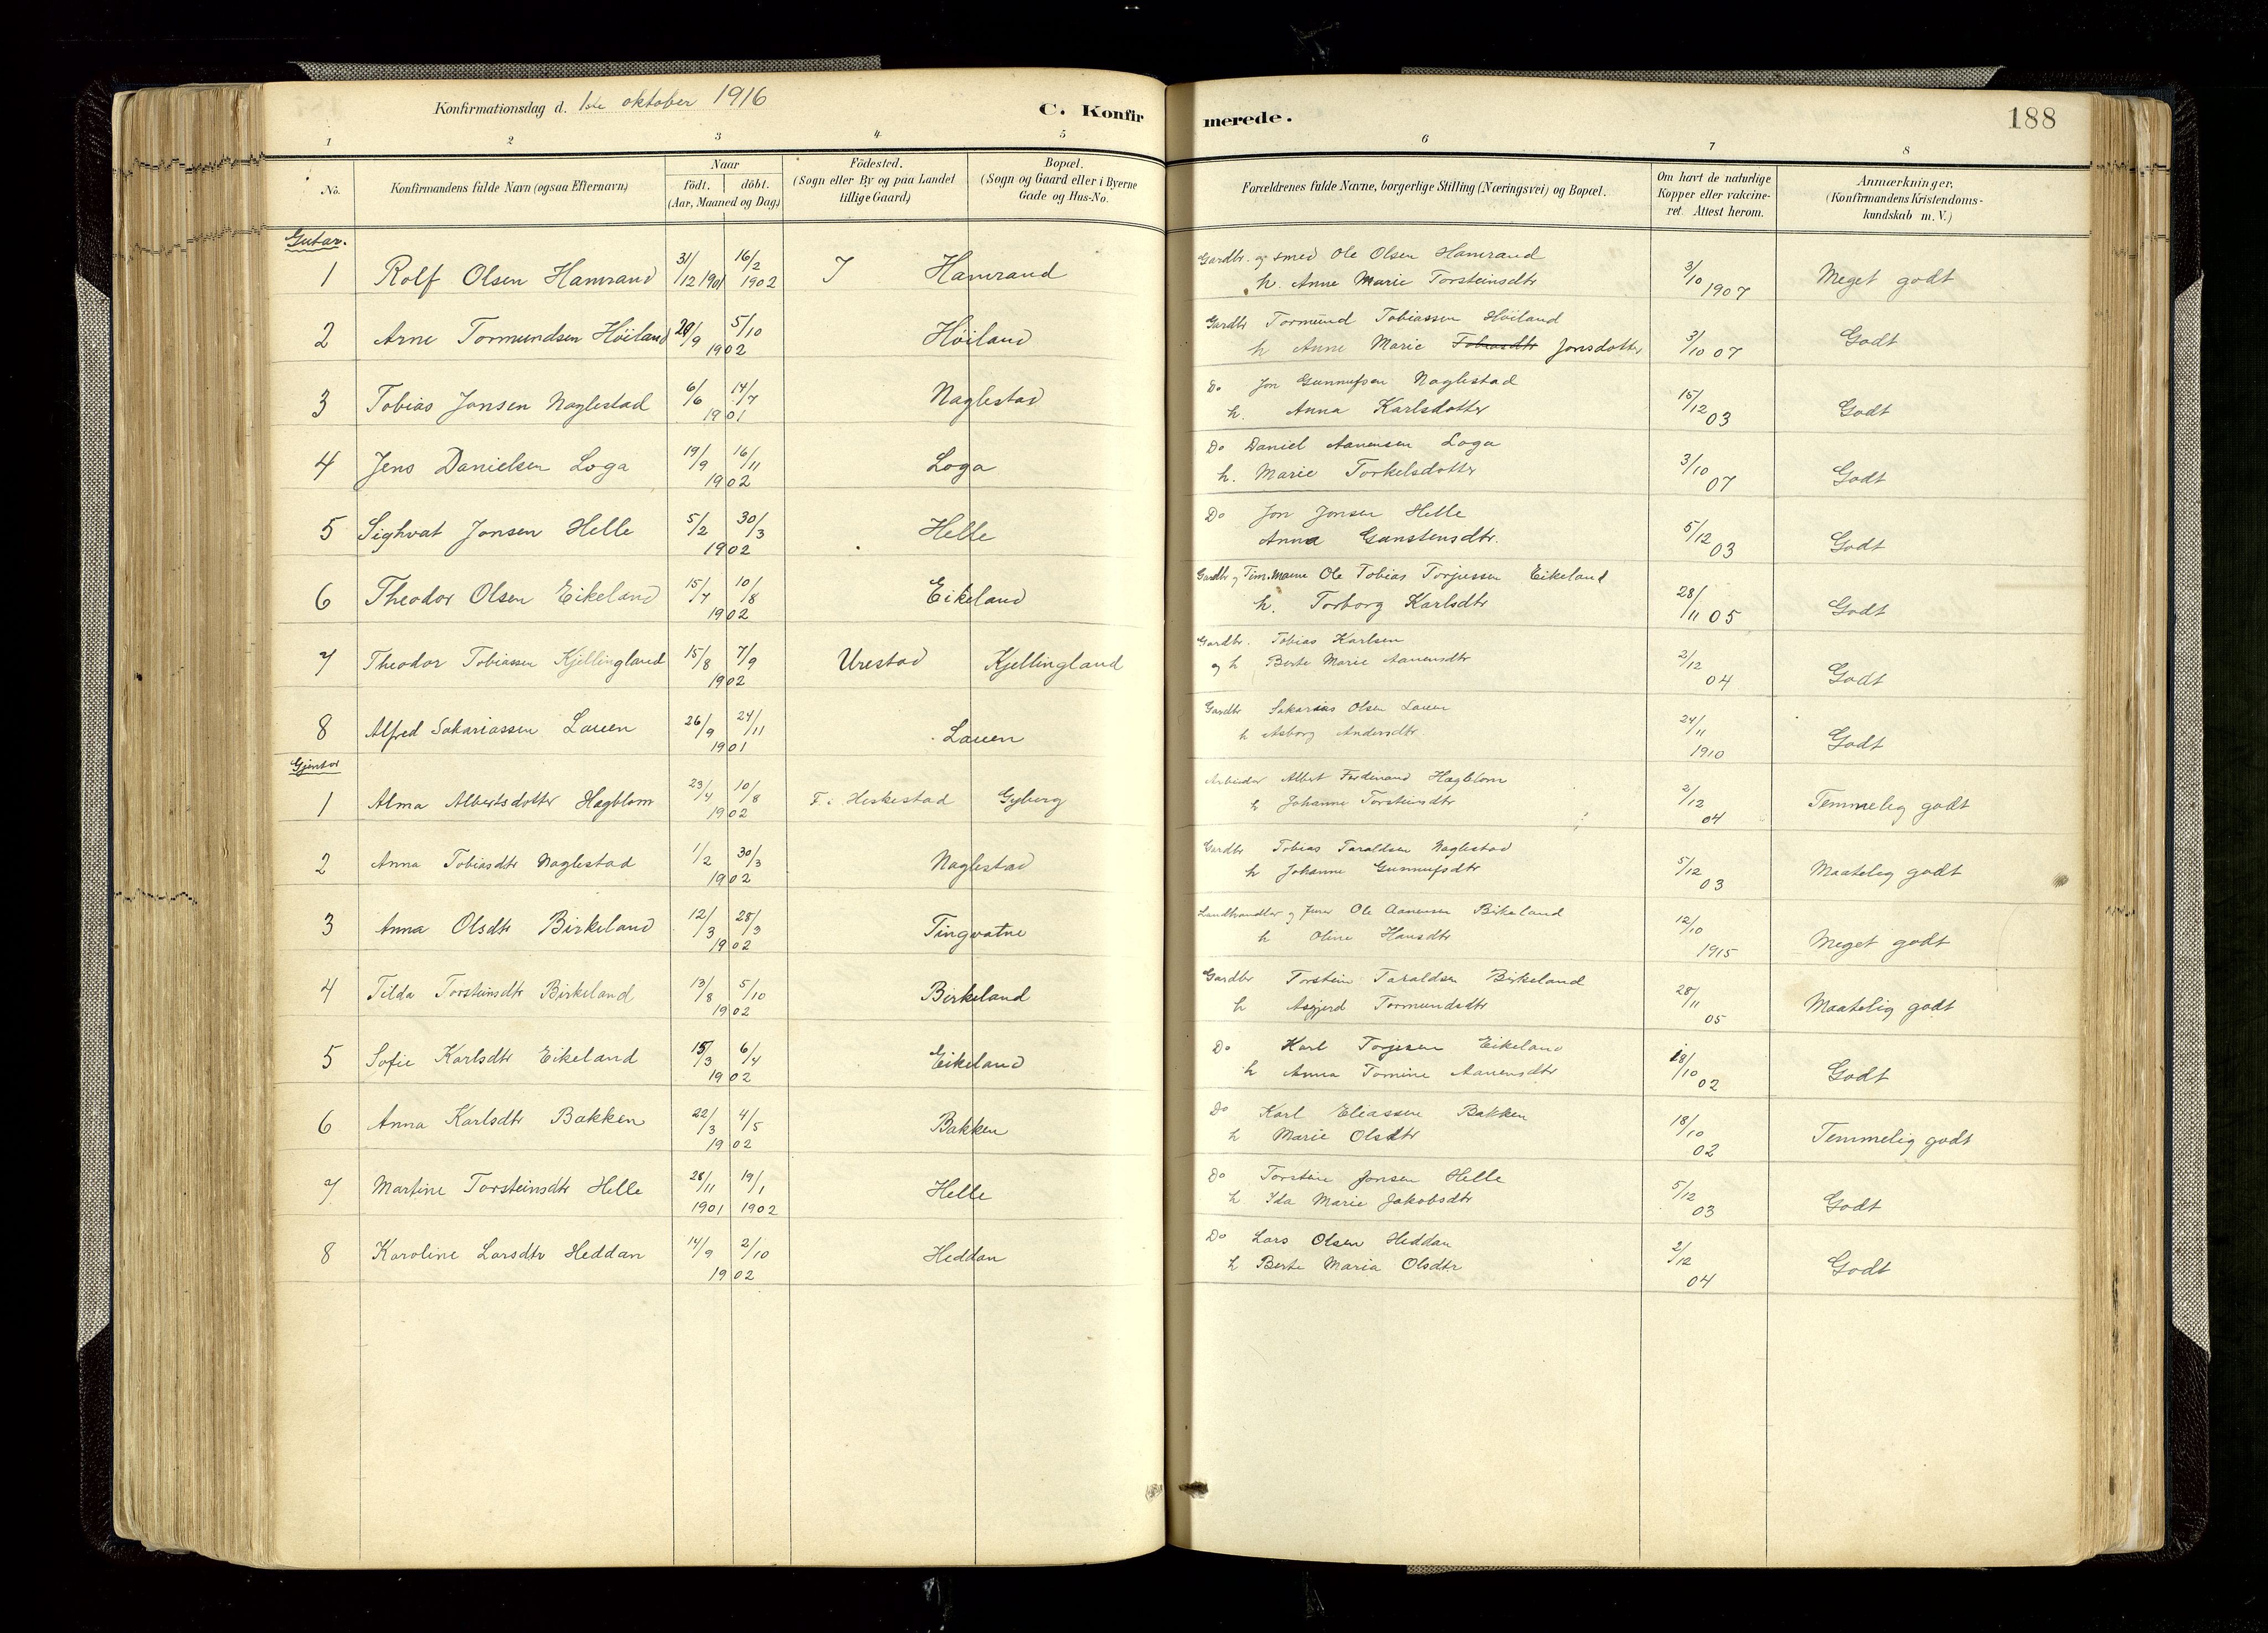 Konfirmationsdag d. 1ste oktober 1916
C. Konfirmerede.
188
1 2 3 4 5 6 7 8
No.
Konfirmandens fulde Navn (ogsaa Efternavn)
Naar
födt. döbt.
(Aar, Maaned og Dag)
Födested.
(Sogn eller By og paa Landet
tillige Gaard)
Bopæl.
(Sogn og Gaard eller i Byerne
Gade og Hus-No.
Forældrenes fulde Navne, borgerlige Stilling (Næringsvei) og Bopæl.
Om havt de naturlige
Kopper eller vakcine-
ret. Attest herom.
Anmærkninger.
(Konfirmandens Kristendoms-
kundskab m. V.)
Gutar.
1 Rolf Olsen Hamrand 31/12 1901 16/2 1902 I Hamrand Gardbr. og smed Ole Olsen Hamrand
h. Anne Marie Torsteinsdtr 3/10 1907 Meget godt
2 Arne Tormundsen Höiland 29/9 5/10 1902 Höiland Gardbr Tormund Tobiassen Höiland
h Anne Marie Tobiasdtr Jonsdotter 3/10 07 Godt
3 Tobias Jonsen Naglestad 6/6 14/7 1901 Naglestad Do Jon Gunnufsen Naglestad
h. Anna Karlsdotter 15/12 03 Godt
4 Jens Danielsen Loga 19/9 16/11 1902 Loga Do Daniel Aanensen Loga
h. Marie Torkelsdotter 3/10 07 Godt
5 Sighvat Jonsen Helle 5/2 30/3 1902 Helle Do Jon Jonsen Helle
Anna Gunstensdtr. 5/12 03 Godt
6 Theodor Olsen Eikeland 15/7 10/8 1902 Eikeland Gardbr og Ole Tobias Torjussen Eikeland
h. Torborg Karlsdtr 28/11 05 Godt
7 Theodor Tobiassen Kjellingland 15/8 7/9 1902 Urestad Kjellingland Gardbr. Tobias Karlsen
og h Berte Marie Aanensdtr 2/12 04 Godt
8 Alfred Sakariassen Lauen 26/9 24/11 1901 Lauen Gardbr Sakarias Olsen Lauen
h Asborg Andersdtr 24/11 1910 Godt
Gjentor
1 Alma Albertsdotter Hagblom 23/4 10/8 1902 F. i Heskestad Gyberg Arbeider Albert Ferdinand Hagblom
h Johanne Torsteinsdtr 2/12 04 Temmelig godt
2 Anna Tobiasdtr Naglestad 1/2 30/3 1902 Naglestad Gardbr Tobias Taraldsen Naglestad
h Johanne Gunnufsdtr 5/12 03 Maatelig godt
3 Anna Olsdtr Birkeland 12/3 28/3 1902 Tingvatne Landhandler og Ole Aanensen Birkeland
h Oline Hansdtr 12/10 1915 Meget godt
4 Tilda Torsteinsdtr Birkeland 13/8 5/10 1902 Birkeland Gardbr Torstein Taraldsen Birkeland
h Asgjerd Tormundsdtr 28/11 05 Maatelig godt
5 Sofie Karlsdtr Eikeland 15/3 6/4 1902 Eikeland Do Karl Torjesen Eikeland
h Anna Tomine Aanensdtr 18/10 02 Godt
6 Anna Karlsdtr Bakken 22/3 4/5 1902 Bakken Do Karl Eliassen Bakken
h Marie Olsdtr 18/10 02 Temmelig godt
7 Martine Torsteinsdtr Helle 28/11 1901 19/1 1902 Helle Do Torstein Jonsen Helle
h Ida Marie Jakobsdtr 5/12 03 Godt
8 Karoline Larsdtr Heddan 14/9 2/10 1902 Heddan Do Lars Olsen Heddan
h Berte Maria Olsdtr 2/12 04 Godt